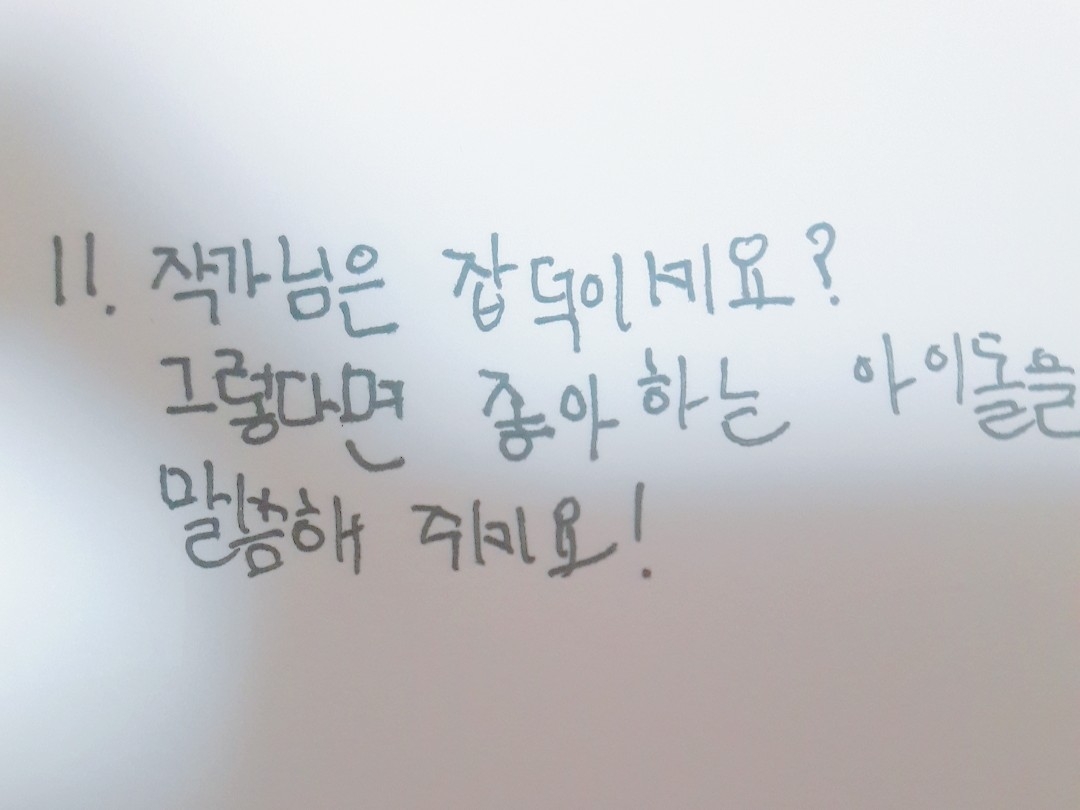 11. 작가님은 잡덕이세요?
그렇다면 좋아하는 아이돌을
말씀해 주세요!